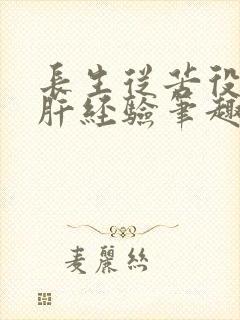 長生從苦役
肝經驗筆趣
麦麗絲